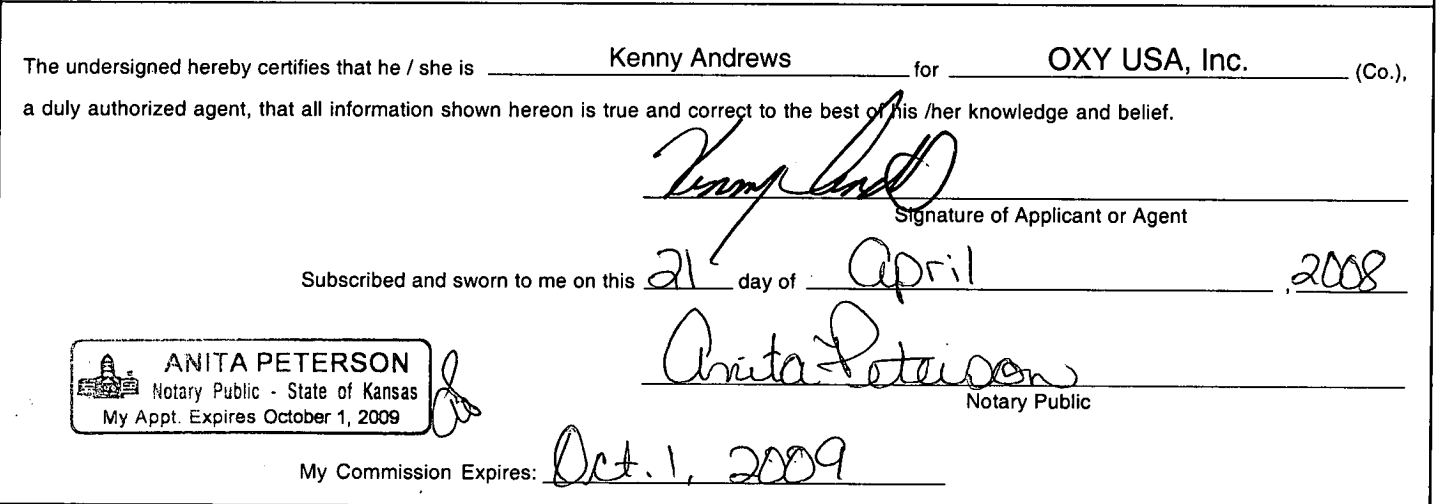 The undersigned hereby certifies that he / she is Kenny Andrews for OXY USA, Inc. (Co.),
a duly authorized agent, that all information shown hereon is true and correct to the best of his /her knowledge and belief.
Kenny And
Signature of Applicant or Agent
Subscribed and sworn to me on this 21 day of April , 2008
Anita Peterson
Notary Public
ANITA PETERSON
Notary Public - State of Kansas
My Appt. Expires October 1, 2009
My Commission Expires: Oct. 1, 2009